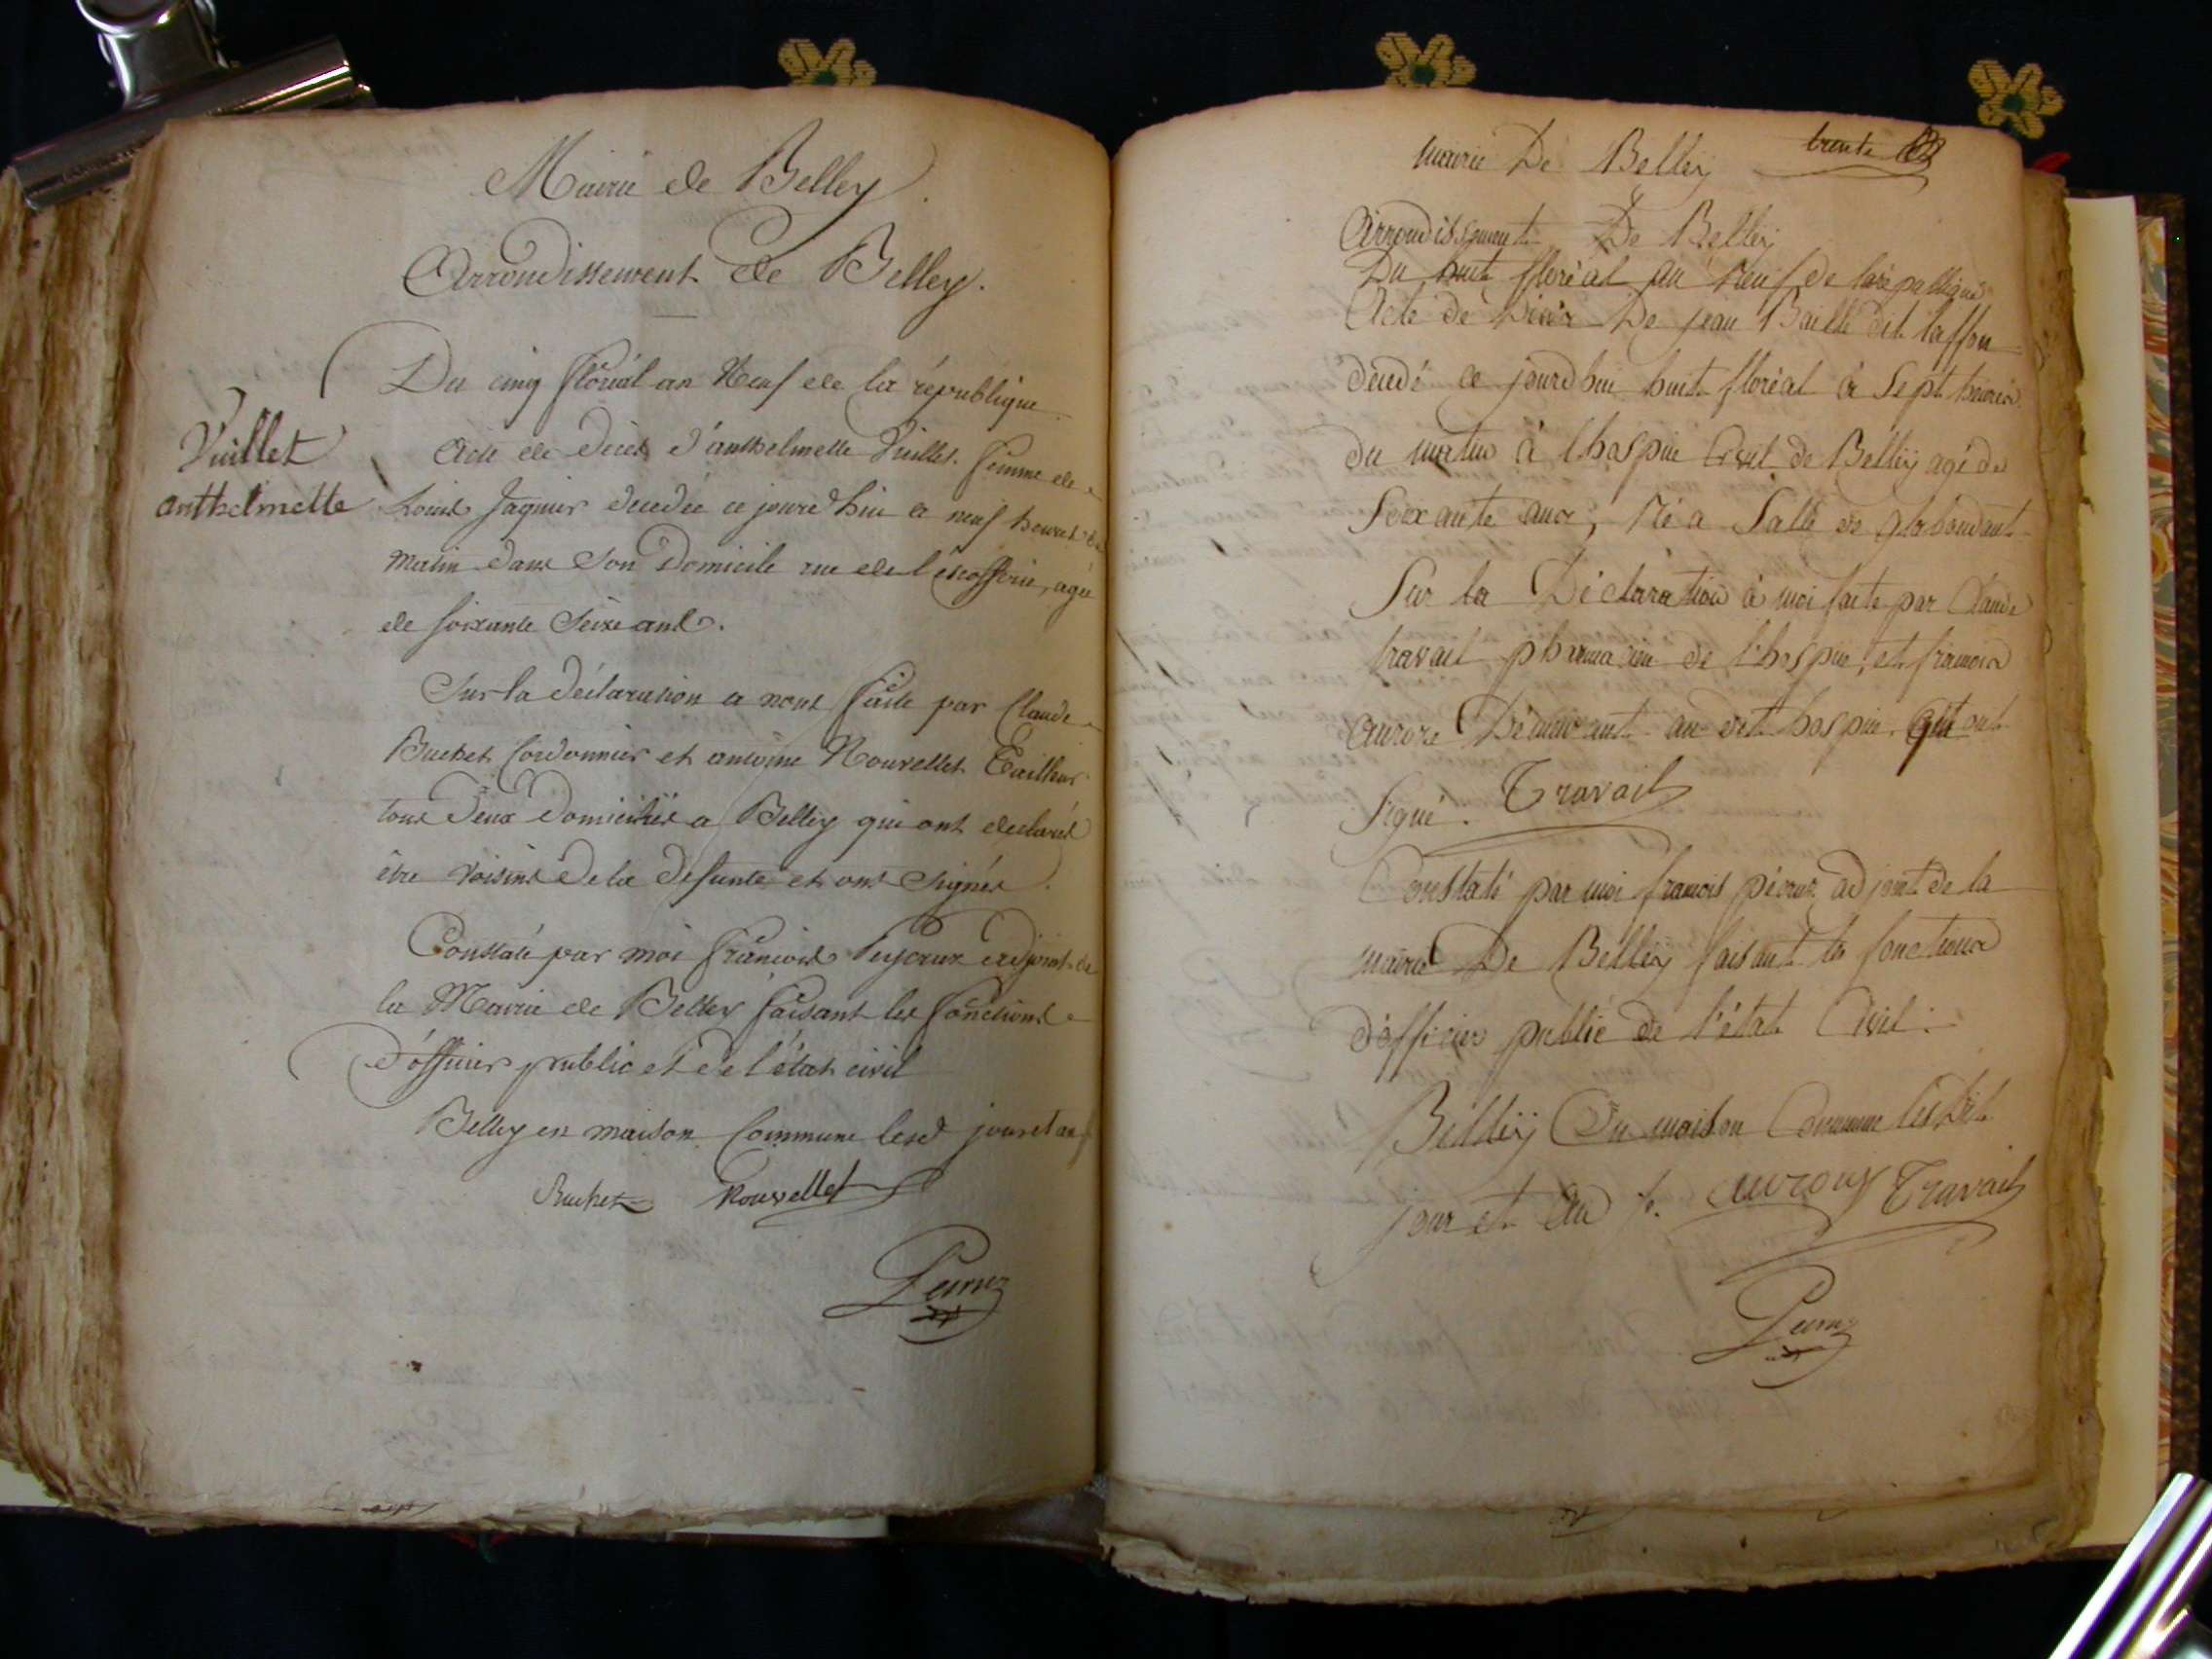 Mairie de Belley
Arrondissement de Belley.
Du cinq floréal an Neuf de la république
Vuillet
anthelmette
Acte de décès d'anthelmette Vuillet femme de
Louis Jaquier decedée ce jourd'hui a neuf heures du
matin dans son Domicile rue de l'escofferie, agée
de soixante seize ans.
Sur la déclaration a nous faite par Claude
Buchet Cordonnier et antoine Nouvellet Tailleur
tous deux Domiciliés a Belley qui ont declarés
être voisins de la defunte et ont signés
Constaté par moi françois Peycruz adjoint de
la Mairie de Belley faisant les fonctions
d'officier public et de l'état civil
Belley en maison Commune lesd jour et an
Buchet Nouvellet
Pecruz
trente
mairie De Belley
Arrondissement De Belley
Du huit floréal an neuf de la republique
Acte de Décès De jean Baille dit laffon
décédé ce jourdhui huit floréal à sept heures
du matin à lhospice Civil de Belley agé de
soixante ans, né a Salle
Sur la Déclaration à moi faite par Claude
travail pharmacien de l'hospice, et francois
aurore Demeurant au dit hospice qui ont
signé. Travail
Constaté par moi francois pécruz adjoint de la
mairie De Belley faisant les fonctions
d'officier public de l'état Civil.
Belley En maison Commune lesdit
jour et an f. auroux Travail
Pecruz